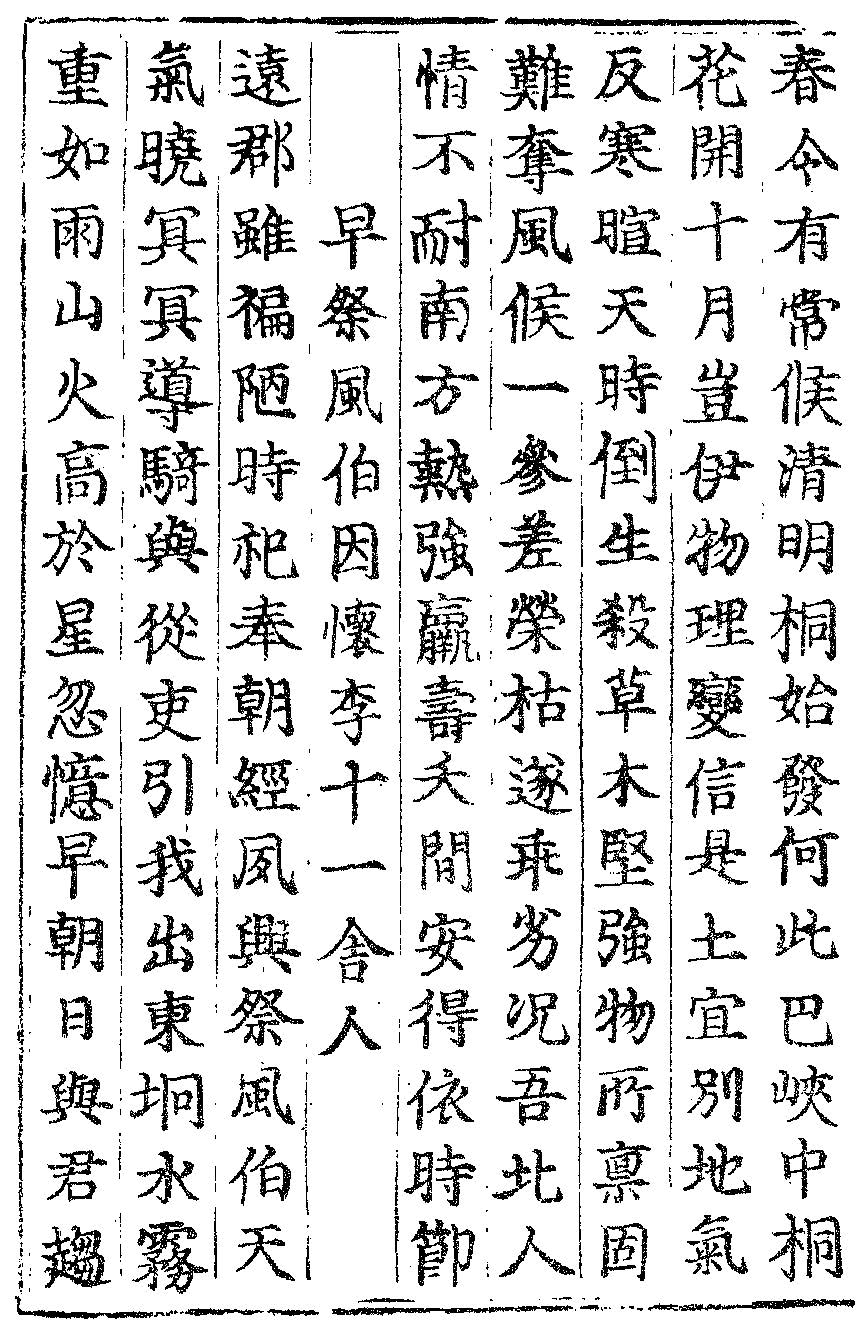 春令有常候清明桐始發何此巴峽中桐
花開十月豈伊物理變信是土宜別地氣
反寒暄天時倒生殺草木堅強物所禀固
難奪風候一參差榮枯遂乖劣况吾北人
情不耐南方熱強羸壽夭間安得依時節
早祭風伯因懷李十一舍人
遠郡雖褊陋時祀奉朝經夙興祭風伯天
氣曉冥冥導騎與從吏引我出東坰水霧
重如雨山火高於星忽憶早朝日與君趨